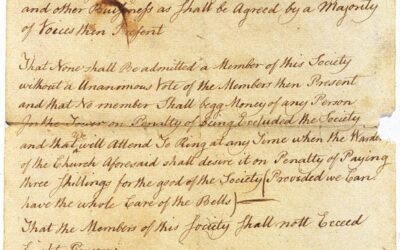 and other Buisness as Shall be Agreed by a Majority
of Voices then Present
That None shall Be admitted a Member of this Society
without a Unanimous Vote of the Members then Present
and that No member Shall begg Money of any Person
In the Tower on Penalty of being Excluded the Society
and that we will Attend To Ring at any Time when the Warden
of the Church Aforesaid shall desire it on Penalty of Paying
three Shillings for the good of the Society (Provided we Can
have the whole Care of the Bells)
That the Members of this Society Shall nott Exceed